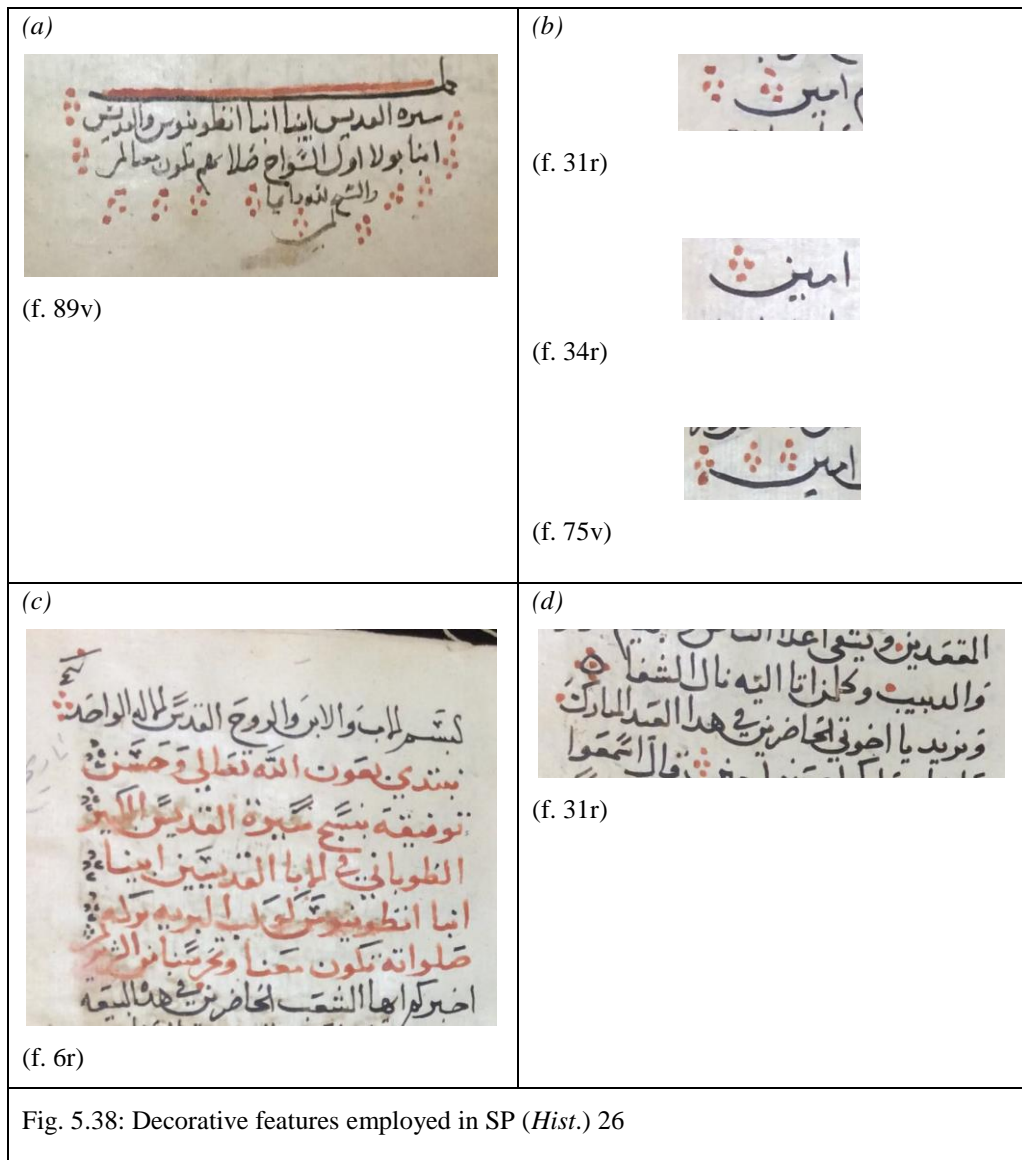 (a)
سيره القديس ابينا انبا انطونيوس والقديس
ابنا بولا اول السواح صلاتهم تكون معنا امين
(f. 89v)
(b)
امين
(f. 31r)
امين
(f. 34r)
امين
(f. 75v)
(c)
بسم الاب والابن والروح القدس الاله الواحد
نبتدي بعون الله تعالي وحسن
توفيقه بنسخ سيرة القديس الكبير
الطوباني في الابا القديسين ابينا
انبا انطونيوس كوكب البريه بركه
صلواته تكون معنا وتحرسنا من
اخبركم ايها الشعب الحاضرين في هده البيعة
(f. 6r)
(d)
المقعدين ويشفي اعلا
والدبيب وكلمن اتا اليه نال الشفا
ونريد يا اخوتي الحاضرين في هدا العيد المبارك
قال اسمعوا
(f. 31r)
Fig. 5.38: Decorative features employed in SP (Hist.) 26